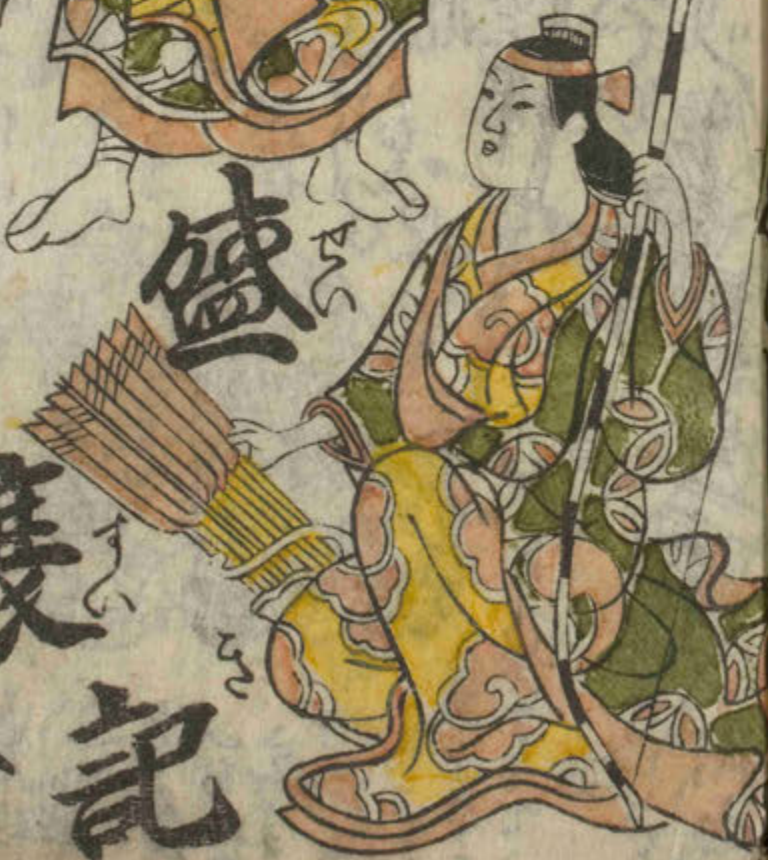 盛
せい
すい
記
き